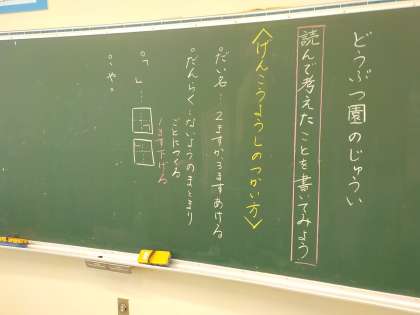 どうぶつ園のじゅうい
読んで考えたことを書いてみよう
〈げんこうようしのつかい方〉
°だい名…2ますか、3ますあける
°だんらく…ないようのまとまり
ごとにつくる
1ます下げる
°「」…
°、や。